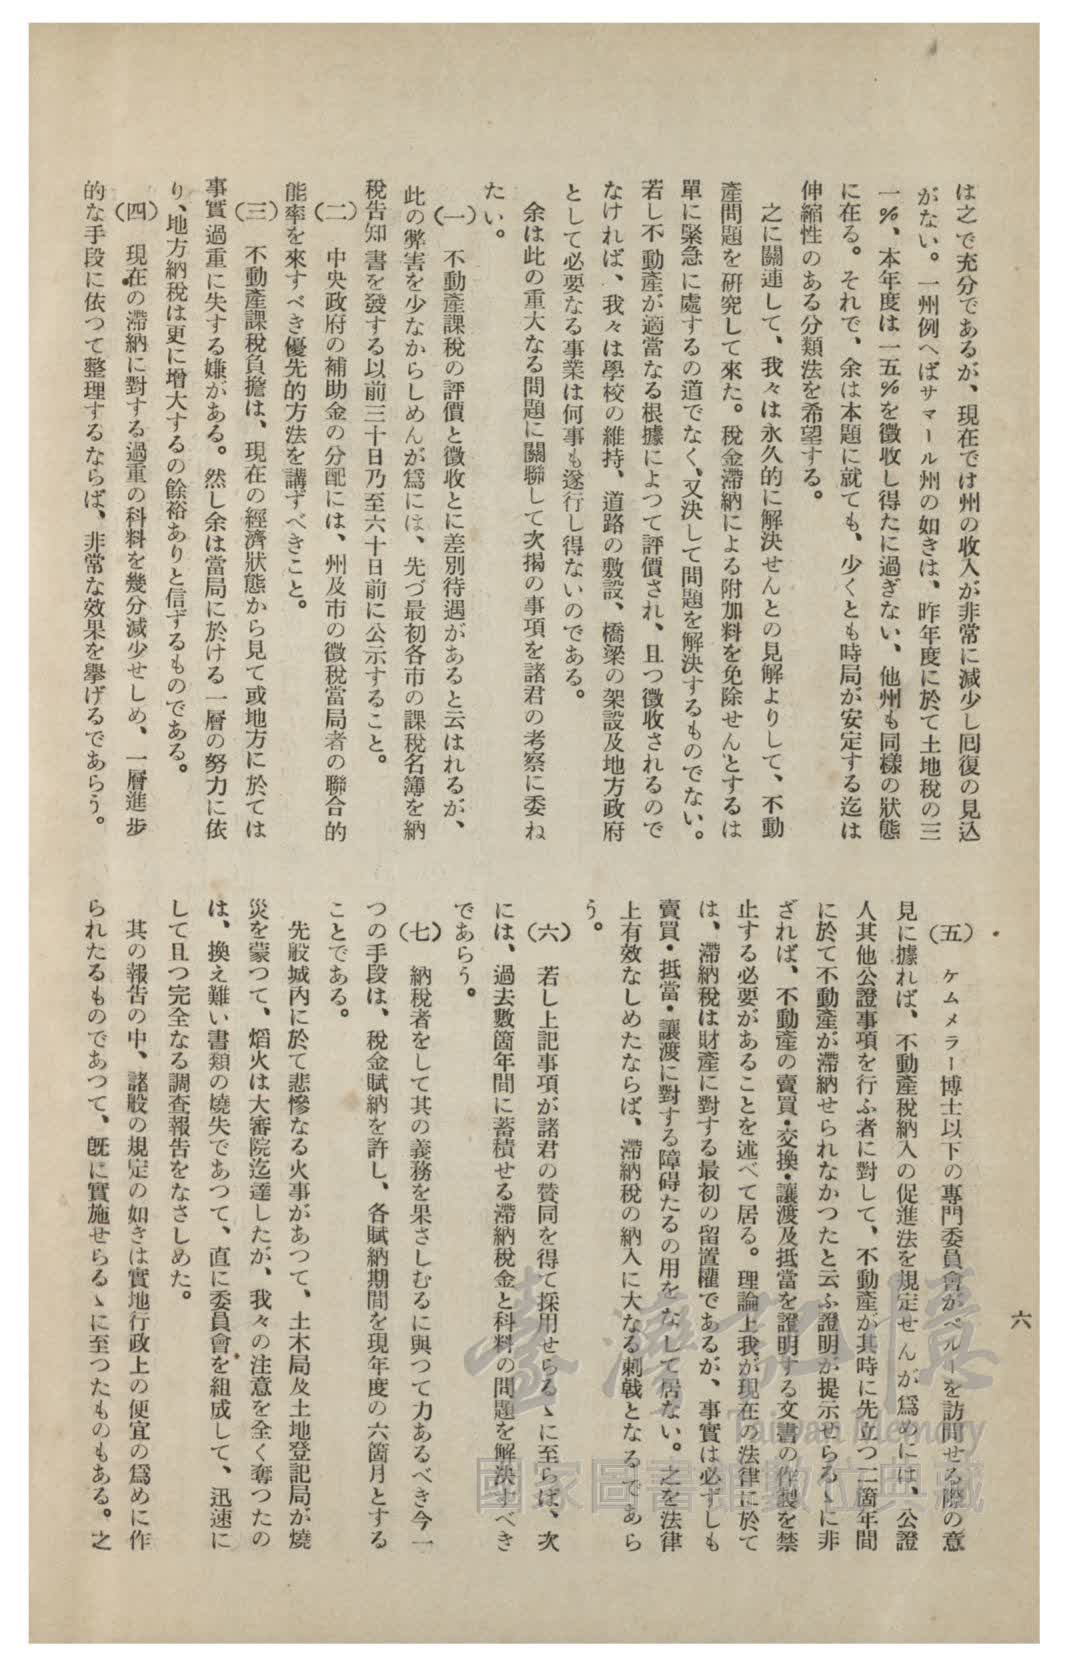 六
は之で充分であるが、現在では州の收入が非常に減少し囘復の見込
がない。一州例へばサマール州の如きは、昨年度に於て土地税の三
一%、本年度は一五%を徴收し得たに過ぎない、他州も同樣の狀態
に在る。それで、余は本題に就ても、少くとも時局が安定する迄は
伸縮性のある分類法を希望する。
之に關連して、我々は永久的に解決せんとの見解よりして、不動
產問題を研究して來た。稅金滯納による附加料を免除せんとするは
單に緊急に處するの道でなく、又決して問題を解決するものでない。
若し不動產が適當なる根據によつて評價され、且つ徵收されるので
なければ、我々は學校の維持、道路の敷設、橋梁の架設及地方政府
として必要なる事業は何事も遂行し得ないのである。
余は此の重大なる問題に關聯して次揭の事項を諸君の考察に委ね
たい。
(一) 不動產課稅の評價と徵收とに差別待遇があると云はれるが、
此の弊害を少なからしめんが爲には、先づ最初各市の課稅名簿を納
稅告知書を發する以前三十日乃至六十日前に公示すること。
(二) 中央政府の補助金の分配には、州及市の徵稅當局者の聯合的
能率を來すべき優先的方法を講ずべきこと。
(三) 不動產課稅負擔は、現在の經濟狀態から見て或地方に於ては
事實過重に失する嫌がある。然し余は當局に於ける一層の努力に依
り、地方納稅は更に增大するの餘裕ありと信ずるものである。
(四) 現在の滯納に對する過重の科料を幾分減少せしめ、一層進步
的な手段に依つて整理するならば、非常な效果を擧げるであらう。
(五) ケムメラー博士以下の專門委員會がペルーを訪問せる際の意
見に據れば、不動產稅納入の促進法を規定せんが爲めには、公證
人其他公證事項を行ふ者に對して、不動產が其時に先立つ二箇年間
に於て不動產が滯納せられなかつたと云ふ證明が提示せらるゝに非
ざれば、不動產の賣買・交換・讓渡及抵當を證明する文書の作製を禁
止する必要があることを述べて居る。理論上我が現在の法律に於て
は、滯納稅は財產に對する最初の留置權であるが、事實は必ずしも
賣買・抵當・讓渡に對する障碍たるの用をなして居ない。之を法律
上有效なしめたならば、滯納稅の納入に大なる刺戟となるであら
う。
(六) 若し上記事項が諸君の賛同を得て採用せらるゝに至らば、次
には、過去數箇年間に蓄積せる滯納稅金と科料の問題を解決すべき
であらう。
(七) 納稅者をして其の義務を果さしむるに與つて力あるべき今一
つの手段は、稅金賦納を許し、各賦納期間を現年度の六箇月とする
ことである。
先般城內に於て悲慘なる火事があつて、土木局及土地登記局が燒
災を蒙つて、焰火は大審院迄達したが、我々の注意を全く奪つたの
は、換え難い書類の燒失であつて、直に委員會を組成して、迅速に
して且つ完全なる調查報告をなさしめた。
其の報告の中、諸般の規定の如きは實地行政上の便宜の爲めに作
られたるものであつて、旣に實施せらるゝに至つたものもある。之
臺灣記憶
Taiwan Memory
國家圖書館數位典藏